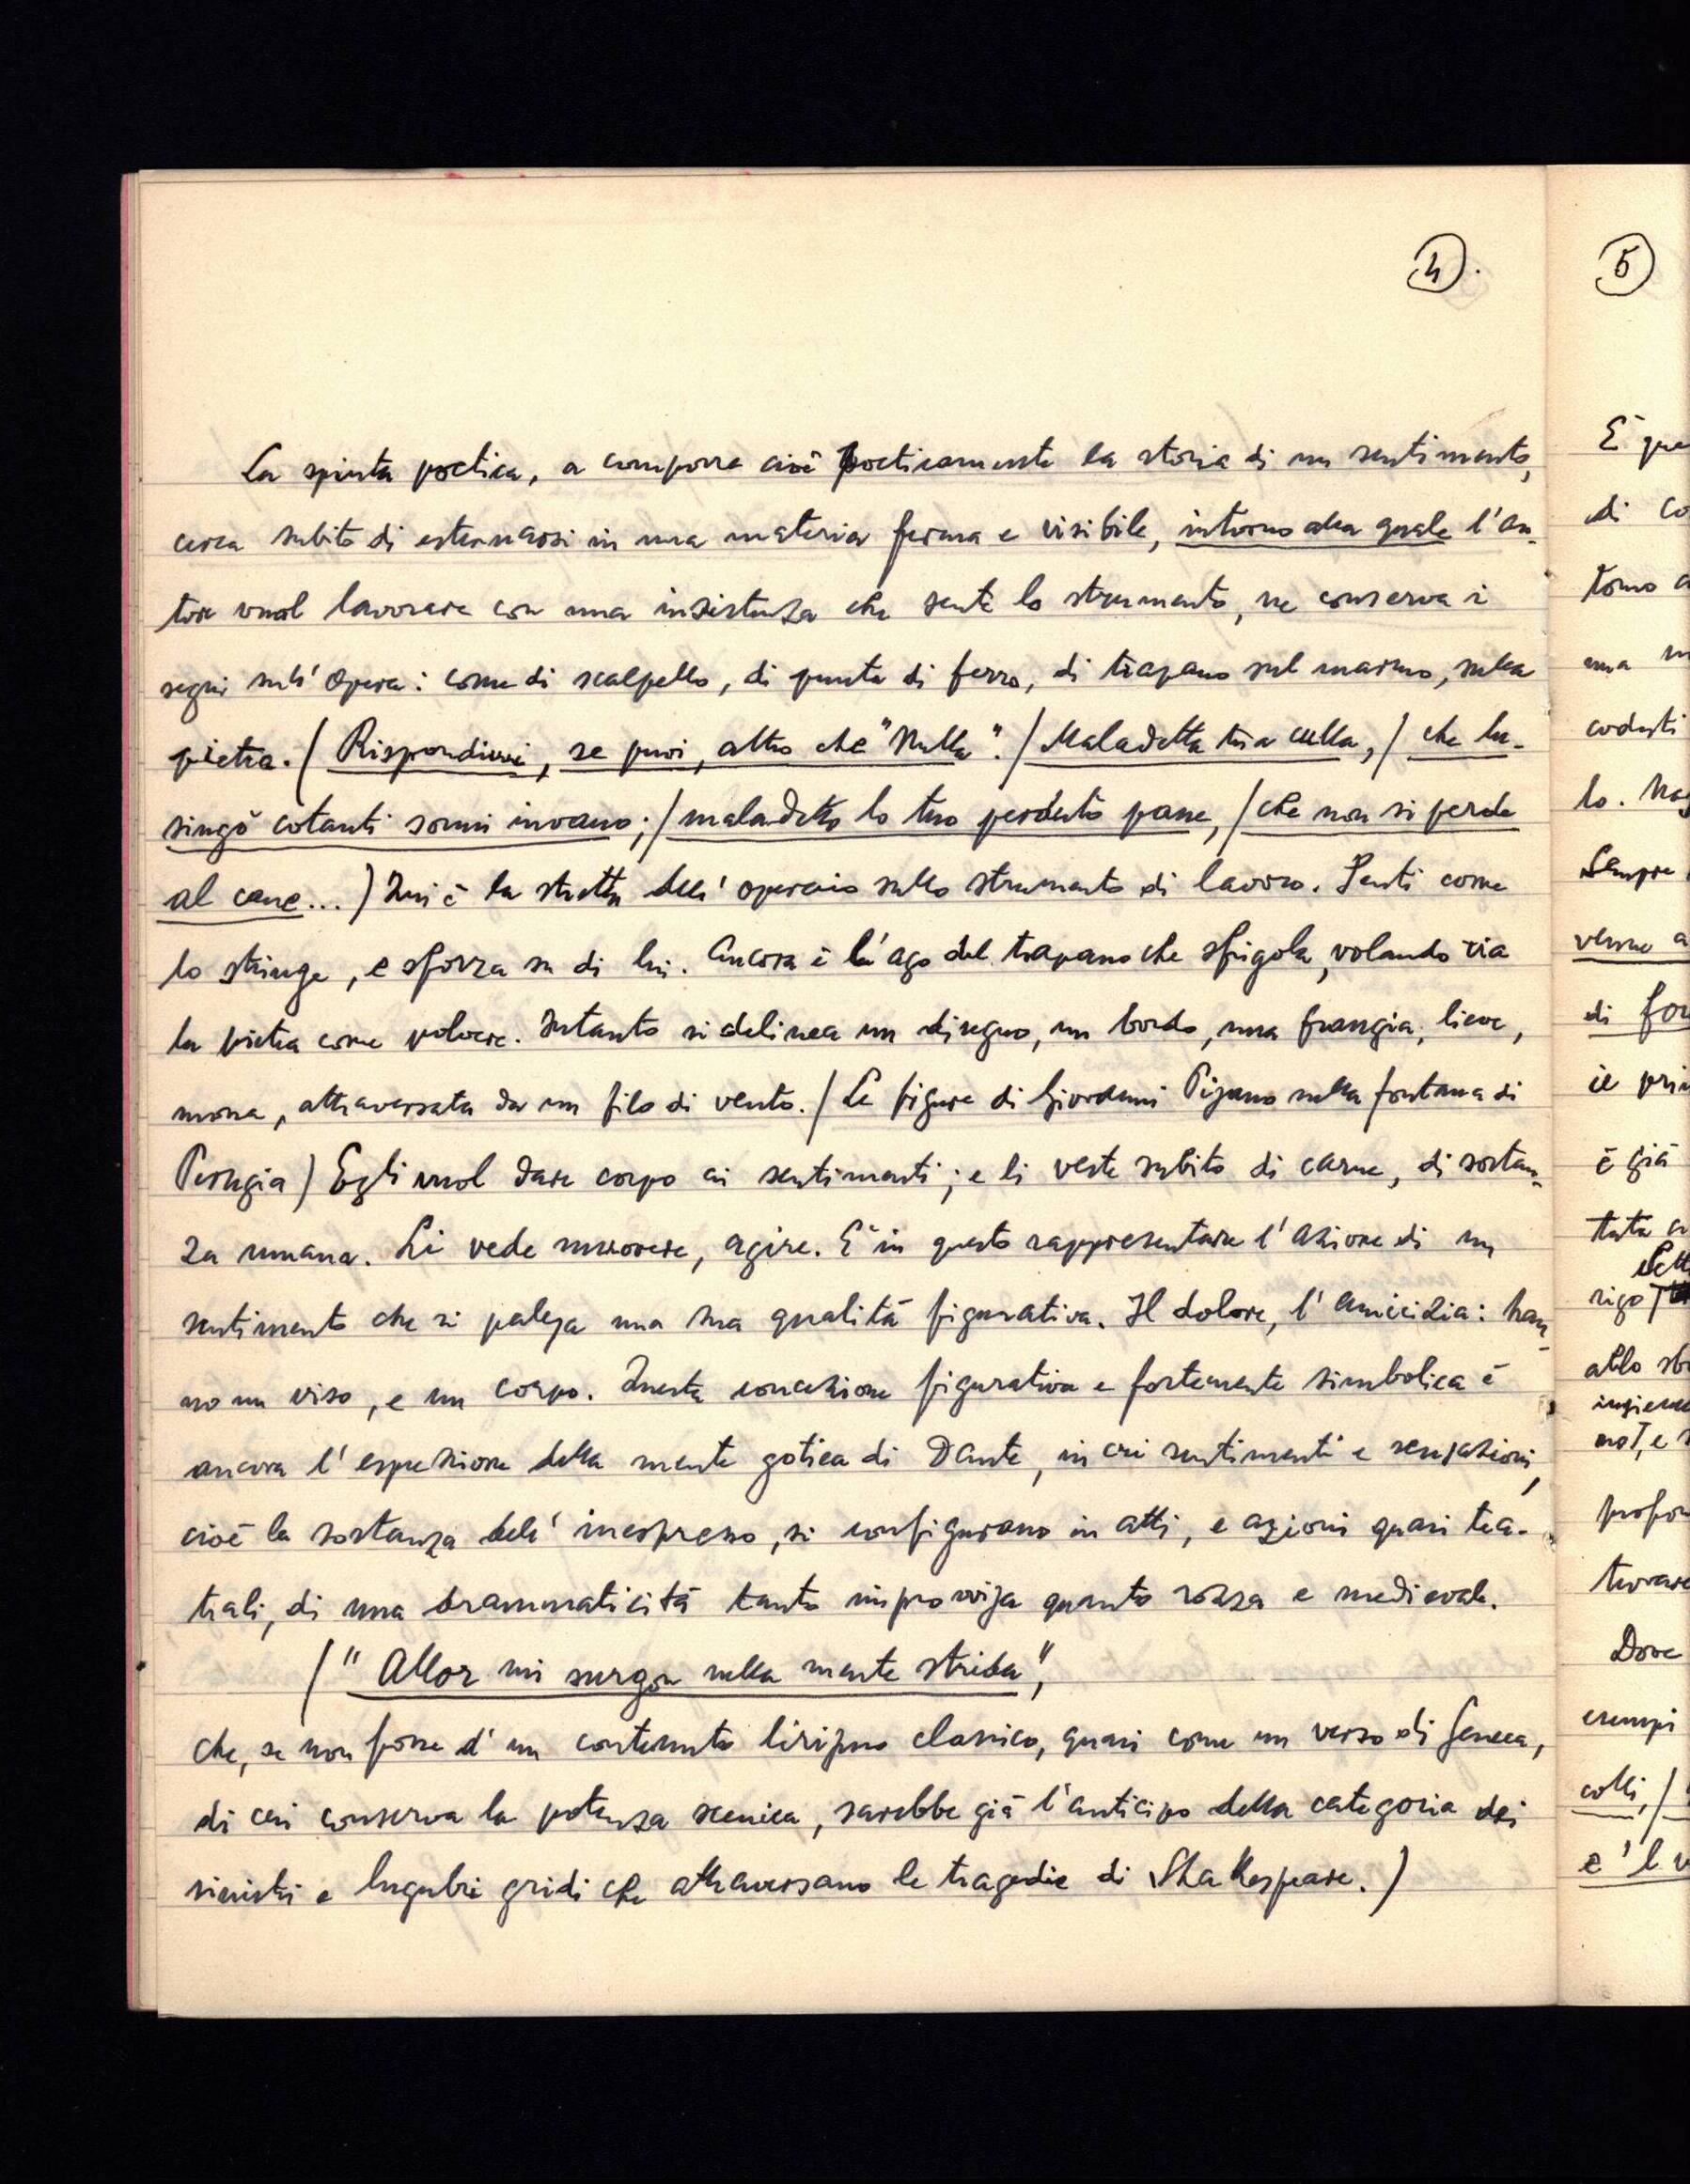 4.
La spinta poetica, a comporre cioè poeticamente la storia di un sentimento,
cerca subito di esternarsi in una materia ferma e visibile, intorno alla quale l'au-
tore vuol lavorare con una insistenza che sente lo strumento, ne conserva i
segni sull'opera: come di scalpello, di punta di ferro, di trapano sul marmo, sulla
pietra. (Rispondimi, se puoi, altro che "Nulla". / Maladetta tua culla, / che lu-
singò cotanti sonni invano; / maladetto lo tuo perduto pane, / che non si perde
al cane...) Qui è la stretta dell'operaio sullo strumento di lavoro. Senti come
lo stringe, e sforza su di lui. Ancora è l'ago del trapano che sfrigola, volando via
la pietra come polvere. Intanto si delinea un disegno, un bordo, una frangia, lieve,
mossa, attraversata da un filo di vento. (Le figure di Giovanni Pisano nella fontana di
Perugia) Egli vuol dare corpo ai sentimenti; e li veste subito di carne, di sostan-
za umana. Li vede muovere, agire. E' in questo rappresentare l'azione di un
sentimento che si palesa una sua qualità figurativa. Il dolore, l'amicizia: han-
no un viso, e un corpo. Questa concezione figurativa e fortemente simbolica è
ancora l'espressione della mente gotica di Dante, in cui sentimenti e sensazioni,
cioè la sostanza dell'inespresso, si configurano in atti, e azioni quasi tea-
trali, di una drammaticità tanto improvvisa quanto rozza e medievale.
("Allor mi surgon nella mente strida",
che, se non fosse d'un contenuto lirismo classico, quasi come un verso di Seneca,
di cui conserva la potenza scenica, sarebbe già l'anticipo della categoria dei
sinistri e lugubri gridi che attraversano le tragedie di Shakespeare.)
5
E' que
di co
torno a
una
codesti
lo.
Sempre
venne a
di for
il prin
è già
tuta
rigo
allo
insieme
no], e
profon
trovare
Dove
esempi
colli, /
e 'l v